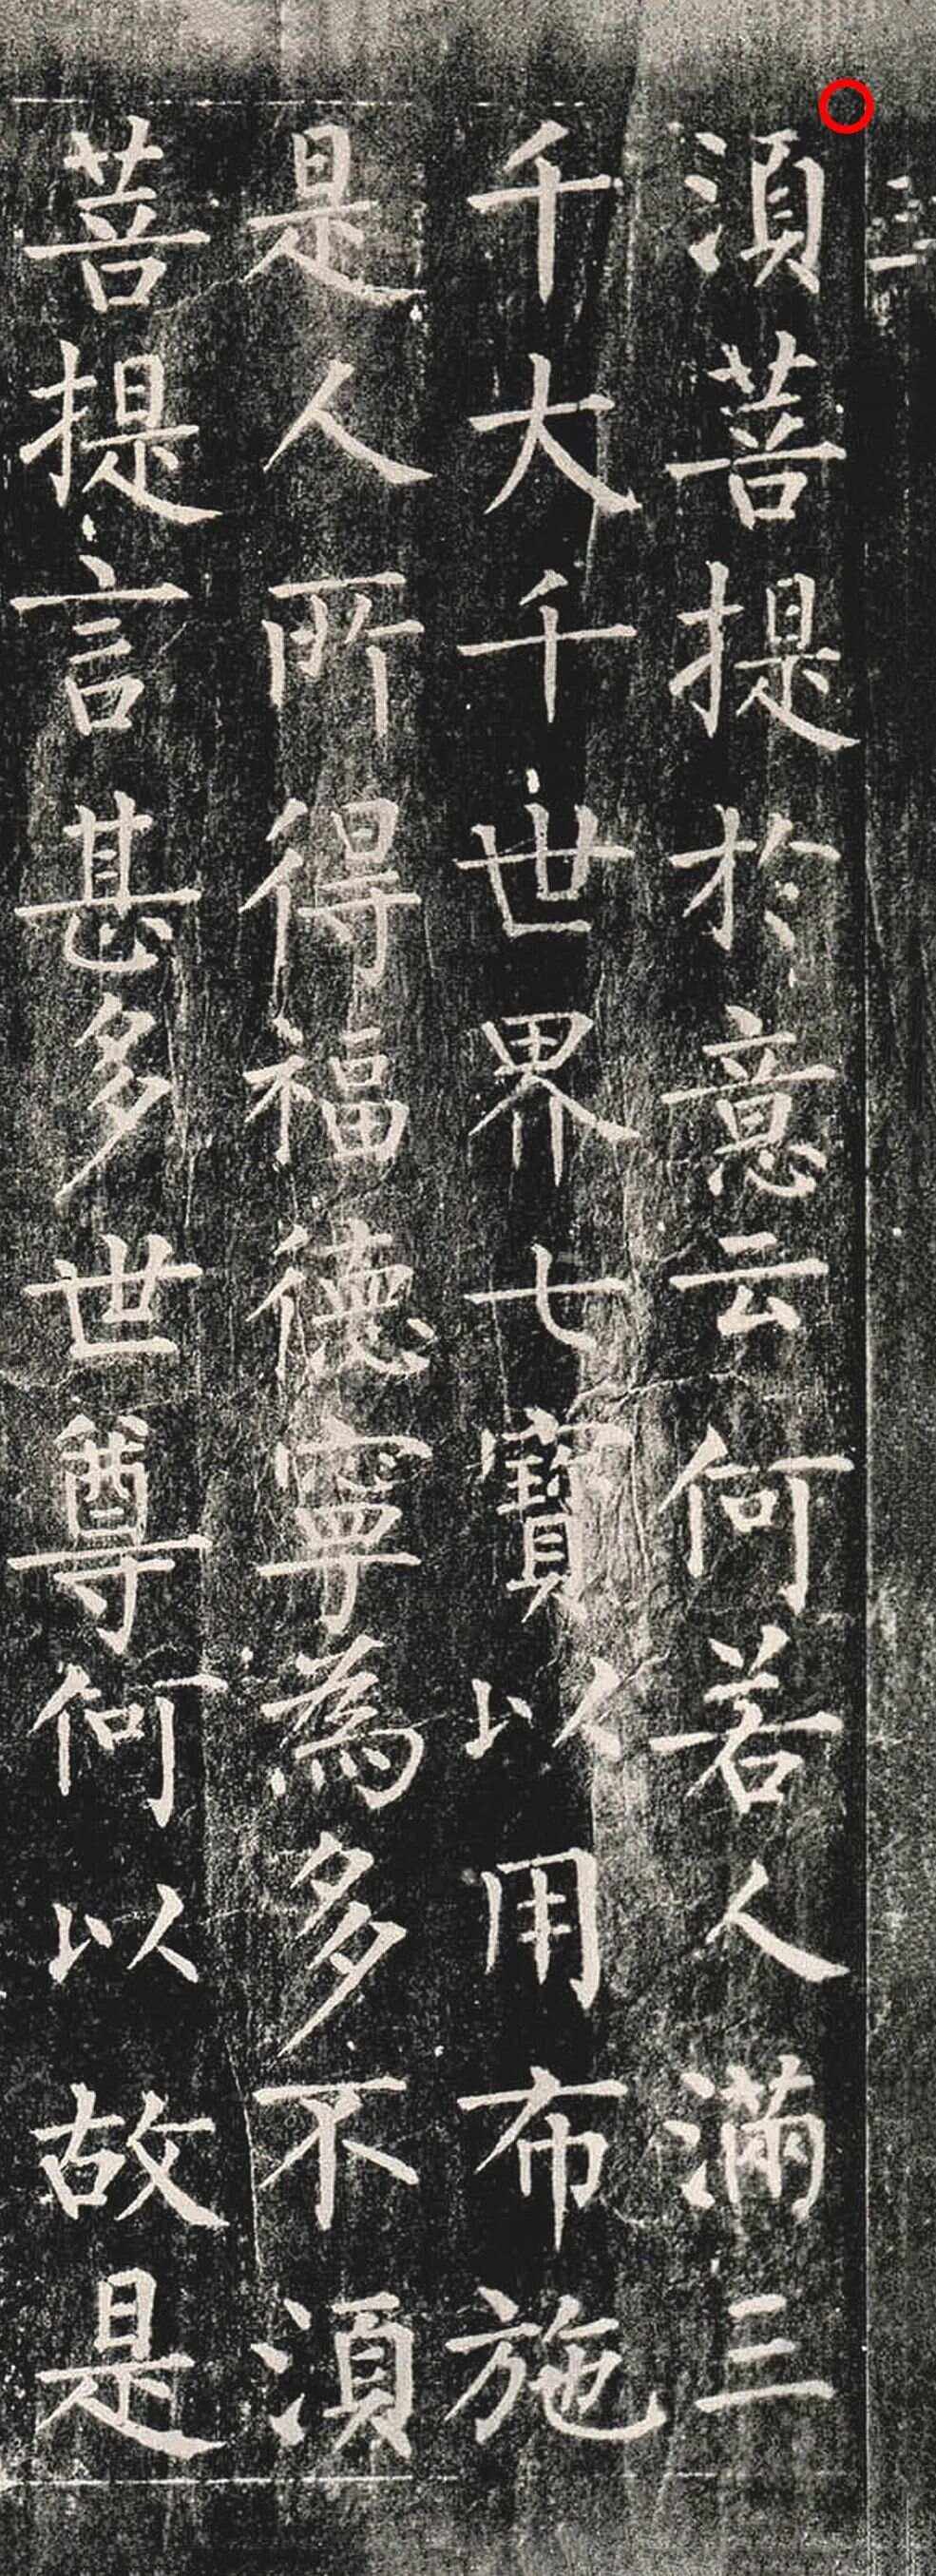 須菩提於意云何若人滿三
千大千世界七寶以用布施
是人所得福德寧為多不須
菩提言甚多世尊何以故是